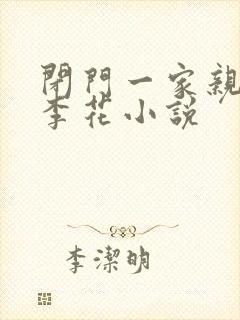 閉門一家親
李花小說
李潔明